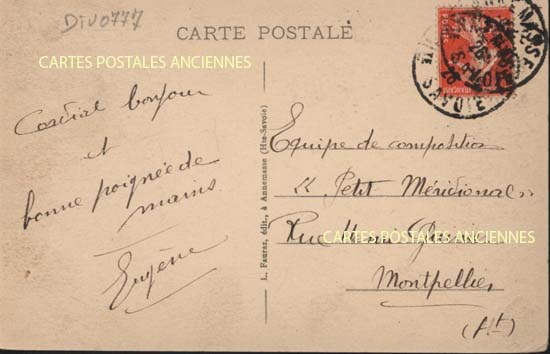 Div0777
CARTE POSTALE
CARTES POSTALES ANCIENNES
Cordial bonjour
et
bonne poignée de
mains
Eugene
L. Fauraz, édit., à Annemasse (Hte-Savoie)
Equipe de composition
« Petit Méridional »
Rue Henri
CARTES POSTALES ANCIENNES
Montpellier
(Ht)
POSTES